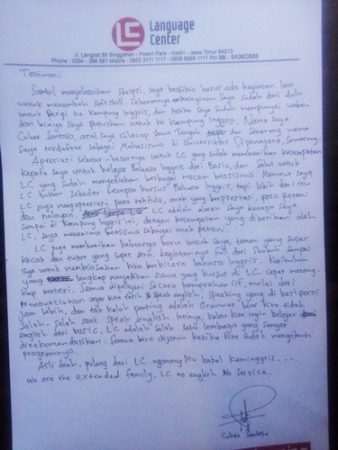 LC
Language
Center
Jl. Langkat 88 Singgahan - Pelem Pare - Kediri - Jawa Timur 64213
Testimoni
Sambil menyelesaikan skripsi, saya berfikir harus ada kegiatan lain
untuk menambah softskill. Sebenarnya keinginan saya sudah dari dulu
untuk pergi ke Kampung Inggris, dan ketika saya sudah mempunyai waktu
dan biaya saya putuskan untuk ke Kampung Inggris. Nama saya
Cuher Santoso, asal saya Cilacap Jawa Tengah dan sekarang
saya terdaftar sebagai Mahasiswa di Universitas Diponegoro, Semarang.
Apresiasi sebesar-besarnya untuk LC yang sudah memberikan kesempatan
kepada saya untuk belajar Bahasa Inggris dari Basic, dan salut untuk
LC yang sudah menyediakan berbagai macam beasiswa. Menurut saya
LC bukan sekedar Lembaga kursus Bahasa Inggris, tapi lebih dari itu
LC juga mengapresiasi para tahfidz, anak yang berprestasi, para petani
dan nelayan. LC adalah alasan saya kenapa saya
sampai di Kampung Inggris ini, dengan kesempatan yang diberikan oleh
LC, saya menerima beasiswa sebagai anak petani.
LC juga memberikan keluarga baru untuk saya, teman yang super
kocak dan tutor yang super seru, kegiatan yg full dari Subuh sampai
Isya untuk membiasakan kita berbicara bahasa Inggris. Kurikulum
yang lengkap menjadikan siswa yang kursus di LC cepat menang-
kap materi. Semua dipelajari secara komprehensif, mulai dari
Pronunciation agar kita speak english, speaking yang di beri porsi
jam lebih, dan tak kalah penting adalah Grammar biar kita tidak
salah-salah saat speak english. Intinya, kalau kita ingin belajar
english dari basic, LC adalah salah satu lembaga yang sangat
direkomendasikan. Semua bisa dijamin ketika kita sudah mengikuti
programnya.
Asli deh, pulang dari LC ngomongMu bakal Keminggris...
We are the extended family, LC no english No service.
Cuher Santoso